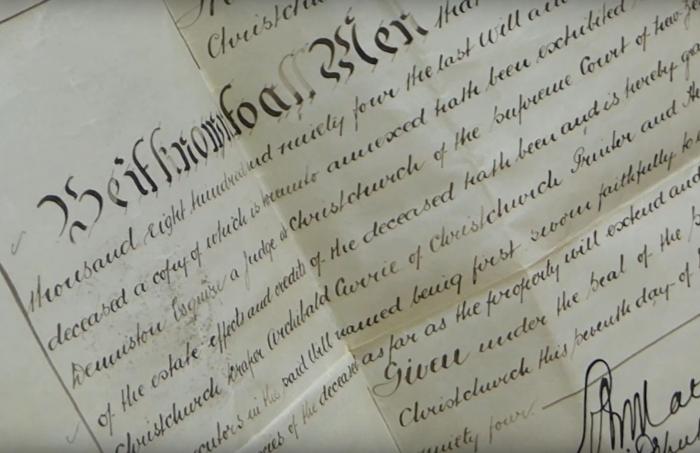 Christchurch
Be it known to all Men that
thousand eight hundred and ninety four the last Will and
deceased a copy of which is hereunto annexed hath been exhibited
Denniston Esquire a Judge at Christchurch of the Supreme Court of New Zea
of the estate effects and credits of the deceased hath been and is hereby gra
Christchurch Draper Archibald Currie of Christchurch Printer and th
ecutors in the said Will named being first sworn faithfully to
of the deceased as far as the property will extend and
Given under the Seal of the S
Christchurch this seventh day of
ninety four.